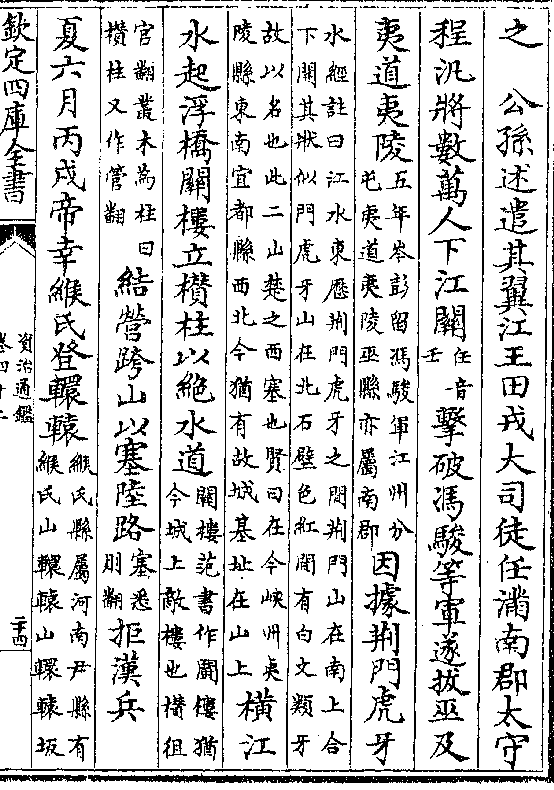 之　公孫述遣其翼江王田戎大司徒任滿南郡太守
程汎將數萬人下江關任音
壬擊破馮駿等軍遂拔巫及
夷道夷陵五年岑彭留馮駿軍江州分
屯夷道夷陵巫縣亦屬南郡因據荆門虎牙
水經註曰江水東歷荆門虎牙之間荆門山在南上合
下開其狀似門虎牙山在北石壁色紅間有白文類牙
故以名也此二山楚之西塞也賢曰在今峽州夷
陵縣東南宜都縣西北今猶有故城基址在山上橫江
水起浮橋關樓立欑柱以絶水道關樓范書作鬭樓猶
今城上敵樓也欑徂
官翻叢木為柱曰
欑柱又作管翻結營跨山以塞陸路塞悉
則翻拒漢兵
夏六月丙戌帝幸緱氏登轘轅緱氏縣屬河南尹縣有
緱氏山轘轅山轘轅坂
欽定四庫全書
資治通鑑
卷四十二
二十四